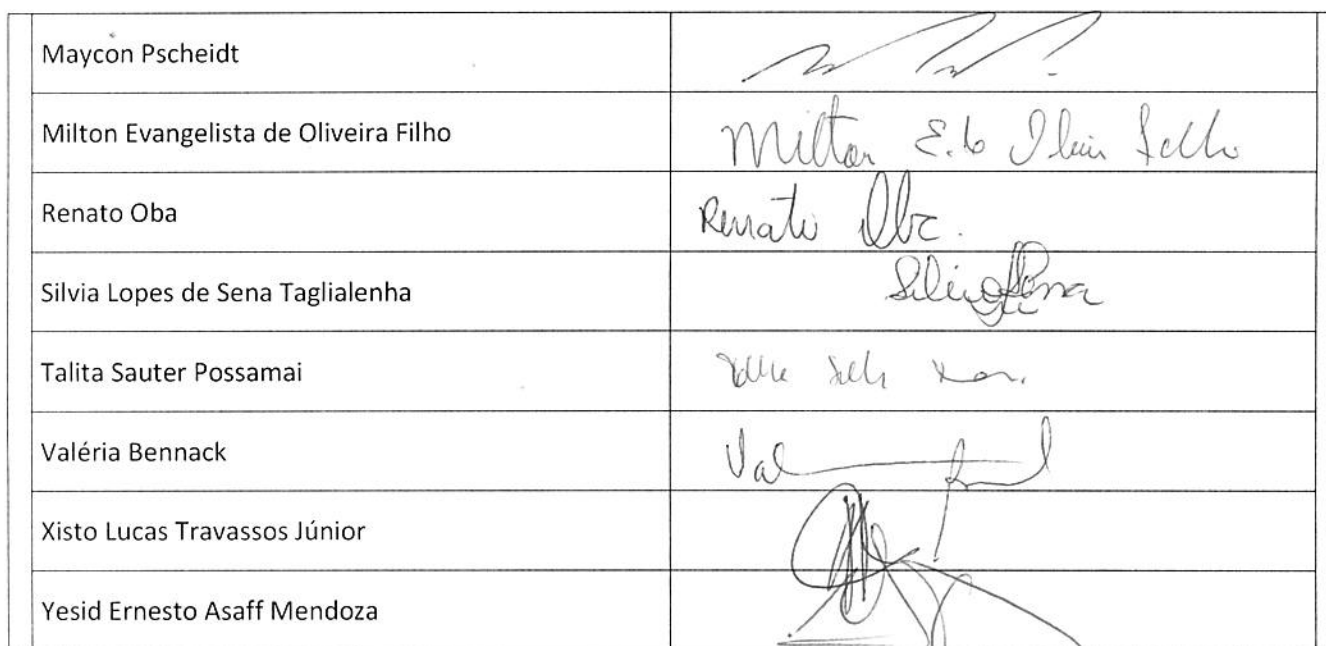 Maycon Pscheidt
Milton Evangelista de Oliveira Filho Milton
Renato Oba Renato Oba.
Silvia Lopes de Sena Taglialenha
Talita Sauter Possamai
Valéria Bennack Val
Xisto Lucas Travassos Júnior
Yesid Ernesto Asaff Mendoza